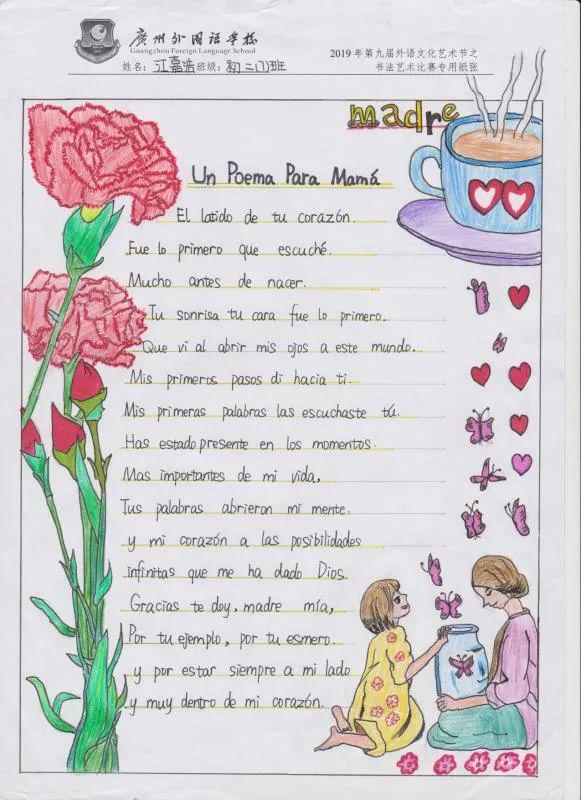 廣州外国语学校
Guangzhou Foreign Language School
2019 年第九届外语文化艺术节之
姓名：江嘉浩班级：初二(7)班
书法艺术比赛专用纸张
madre
Un Poema Para Mamá
El latido de tu corazón.
Fue lo primero que escuché.
Mucho antes de nacer.
Tu sonrisa tu cara fue lo primero.
Que vi al abrir mis ojos a este mundo.
Mis primeros pasos di hacia ti.
Mis primeras palabras las escuchaste tú.
Has estado presente en los momentos.
Mas importantes de mi vida,
Tus palabras abrieron mi mente.
y mi corazón a las posibilidades
infinitas que me ha dado Dios.
Gracias te doy, madre mía,
Por tu ejemplo, por tu esmero.
y por estar siempre a mi lado
y muy dentro de mi corazón.